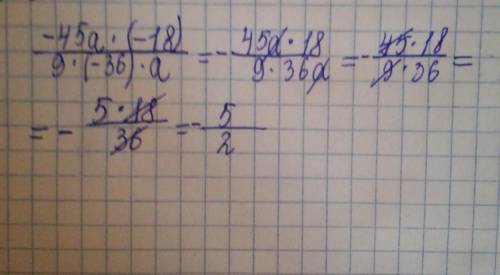 (-45a · (-18))/(9 · (-36) · a) = - (45a · 18)/(9 · 36a) = - (45 · 18)/(9 · 36) =
= - (5 · 18)/36 = - 5/2